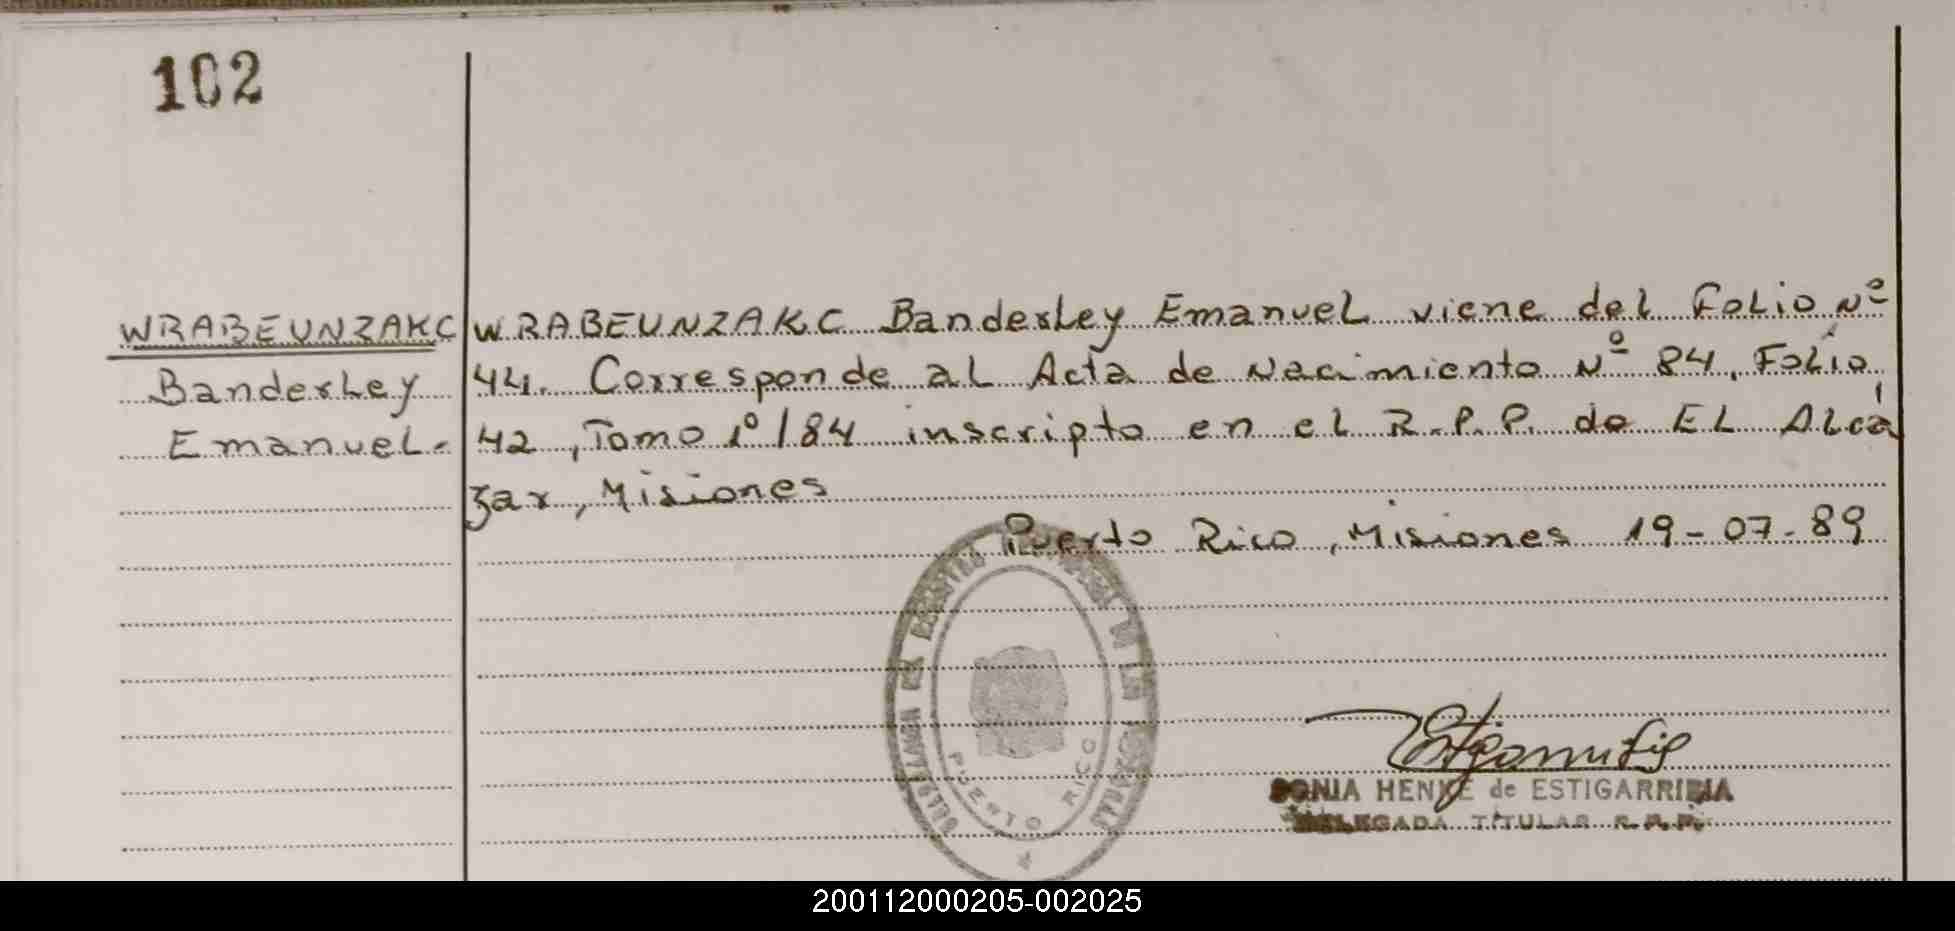 102
WRABEUNZAKC
Banderley
Emanuel-
WRABEUNZAKC Banderley Emanuel viene del Folio Nº
44. Corresponde al Acta de Nacimiento Nº 84, Folio
42, Tomo 1º/84 inscripto en el R.P.P. de EL Alcá
zar, Misiones
Puerto Rico, Misiones 19-07-89
PUERTO RICO
SONIA HENKE de ESTIGARRIBIA
DELEGADA TITULAR R.P.P.
200112000205-002025